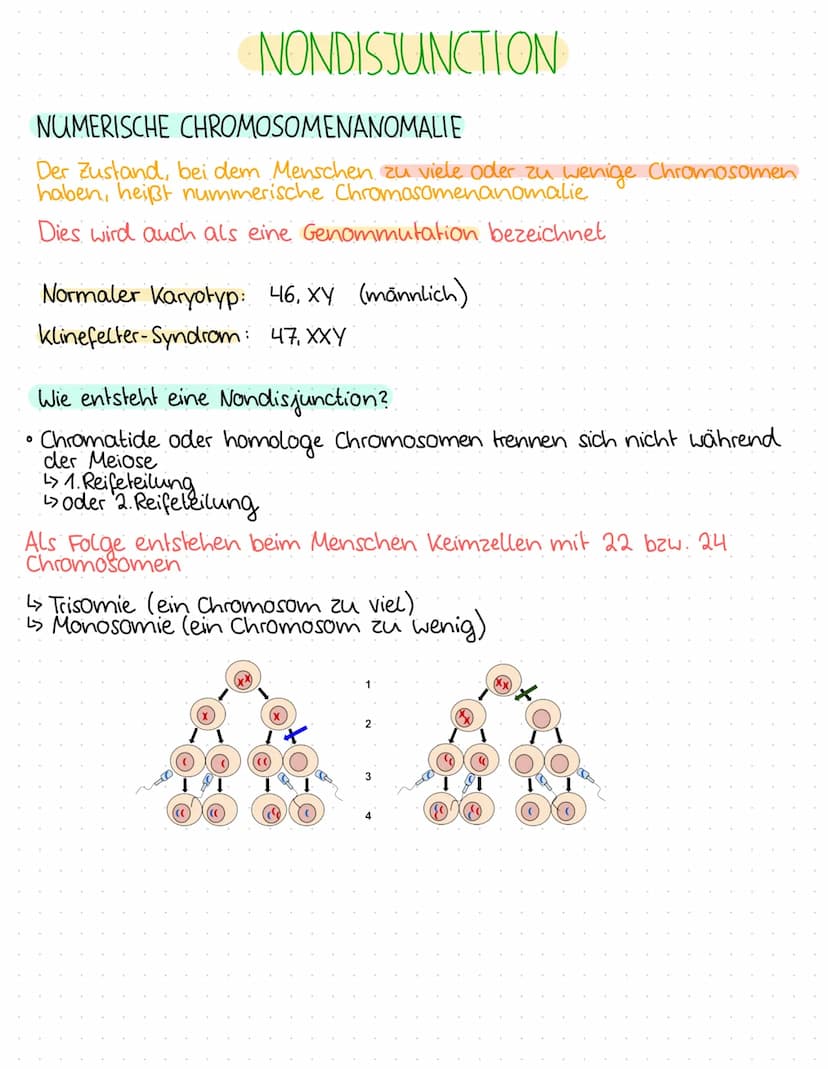 NONDISJUNCTION
NUMERISCHE CHROMOSOMENANOMALIE
Der Zustand, bei dem Menschen zu viele oder zu wenige Chromosomen
haben, heißt nummerische Chromosomenanomalie
Dies wird auch als eine Genommutation bezeichnet
Normaler Karyotyp: 46, XY (männlich)
Klinefelter-Syndrom: 47, XXY
Wie entsteht eine Nondisjunction?
• Chromatide oder homologe Chromosomen trennen sich nicht während
der Meiose
↳ 1. Reifeteilung
↳ oder 2. Reifeteilung
Als Folge entstehen beim Menschen Keimzellen mit 22 bzw. 24
Chromosomen
↳ Trisomie (ein Chromosom zu viel)
↳ Monosomie (ein Chromosom zu wenig)
1
2
3
4